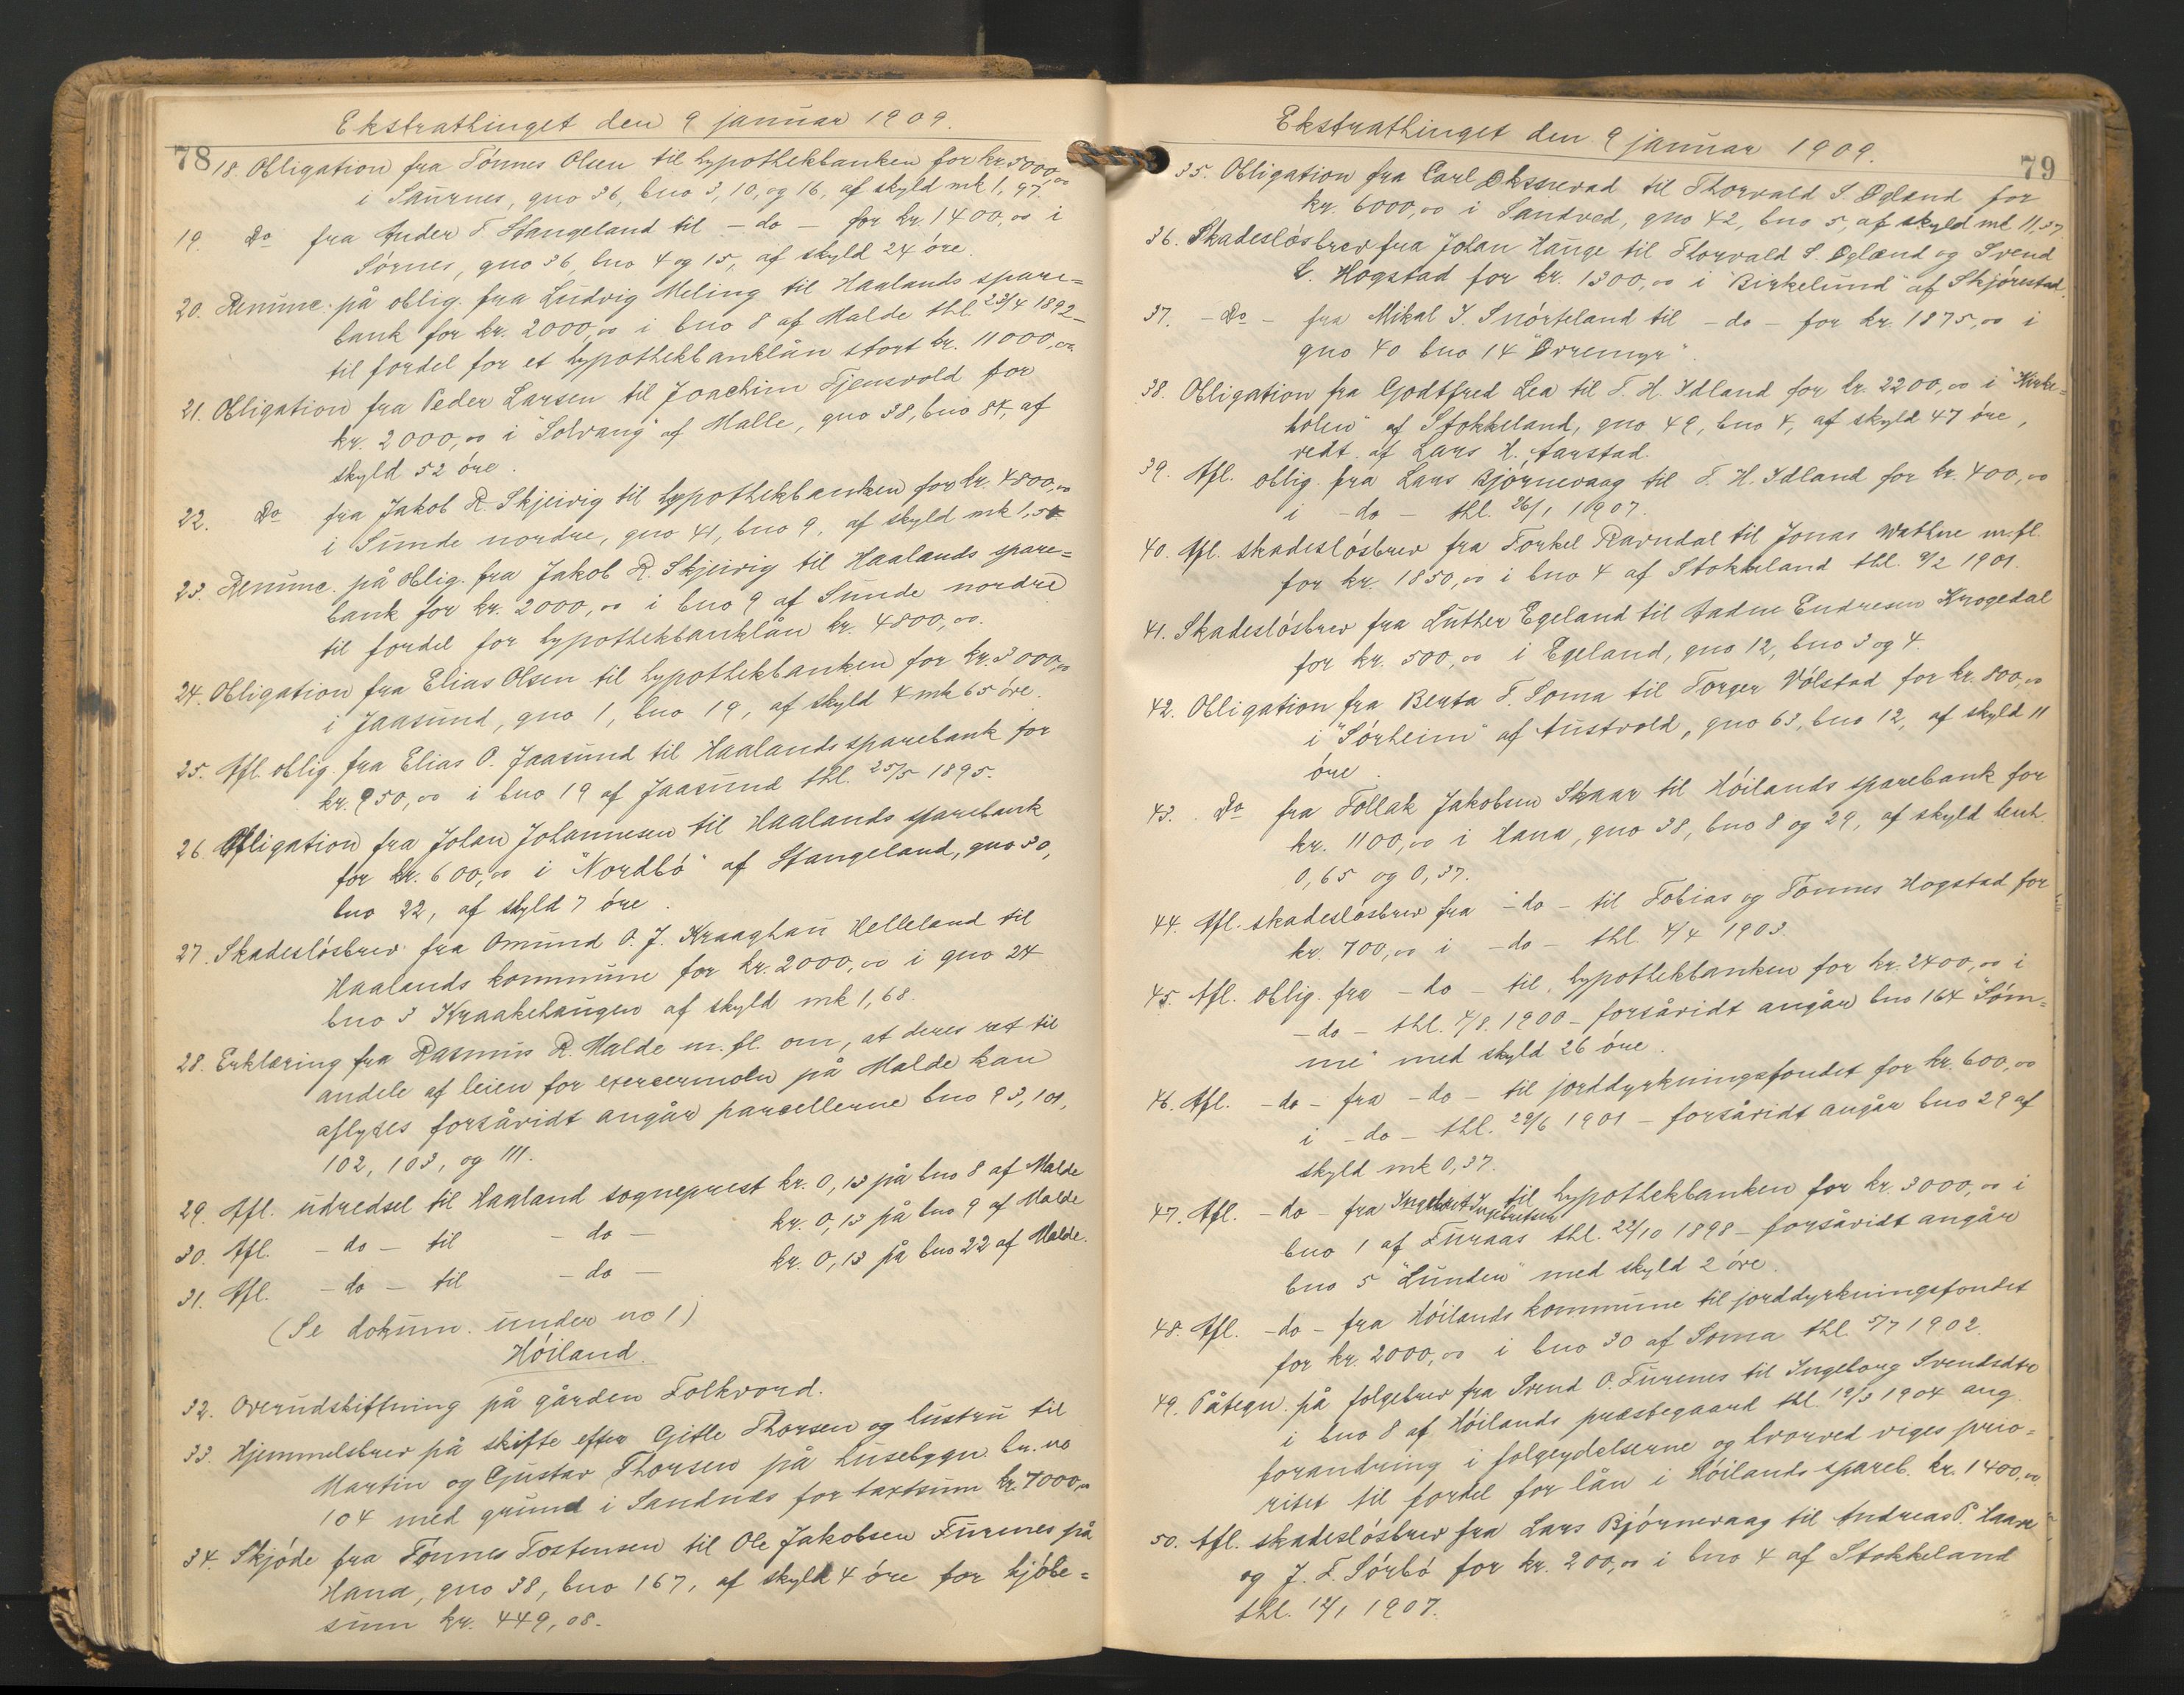 Ekstrathinget den 9 januar 1909.
78
18. Obligation fra Tónnes Olsen til hypothekbanken for kr. 5000,00
i Saurnes, gno 36, bno 3, 10, og 16, af skyld mk 1,97.
19. Do fra Ander T. Stangeland til - do - for kr. 1400,00 i
Sórnes, gno 36, bno 4 og 15, af skyld 24 óre.
20. Renunc. på oblig. fra Ludvig Meling til Haalands spare=
bank for kr. 2000,00 i bno 8 af Malde thl. 23/4 1892 -
til fordel for et hypothekbanklån stort kr. 11000,00
21. Obligation fra Peder Larsen til Joachim Tjensvold for
kr. 2000,00 i "Solvang" af Malle, gno 38, bno 84, af
skyld 52 óre.
22. Do fra Jakob R. Skjeivig til hypothekbanken for kr. 4800,00
i Sunde nordre, gno 41, bno 9, af skyld mk 1,54
23. Renunc. på oblig. fra Jakob R. Skjeivig til Haalands spare=
bank for kr. 2000,00 i bno 9 af Sunde nordre
til fordel for hypothekbanklån kr. 4800,00.
24. Obligation fra Elias Olsen til hypothekbanken for kr. 3000,00
i Jaasund, gno 1, bno 19, af skyld 4 mk 65 óre.
25. Afl. oblig. fra Elias O. Jaasund til Haalands sparebank for
kr. 950,00 i bno 19 af Jaasund thl. 25/5 1895.
26. Obligation fra Johan Johannesen til Haalands sparebank
for kr. 600,00 i "Nordbó" af Stangeland, gno 30,
bno 22, af skyld 7 óre.
27. Skadeslósbrev fra Omund O. J. Kraaghau Helleland til
Haalands kommune for kr. 2000,00 i gno 24
bno 3 Kraakehaugen af skyld mk 1,68.
28. Erklæring fra Rasmus R. Malde m. fl. om, at deres ret til
andele af leien for exercermoen på Malde kan
aflyses forsåvidt angår parcellerne bno 93, 101,
102, 103, og 111.
29. Afl. udredsel til Haaland sogneprest kr. 0,13 på bno 8 af Malde
30. Afl. - do - til - do - kr. 0,13 på bno 9 af Malde
31. Afl. - do - til - do - kr. 0,13 på bno 22 af Malde.
(Se dokum. under no 1)
Hóiland.
32. Overudskiftning på gården Folkvord.
33. Hjemmelsbrev på skifte efter Gitle Thorsen og hustru til
Martin og Gustav Thorsen på husebygn. br. no
104 med grund i Sandnes for taxtsum kr. 7000,00
34. Skjóde fra Tónnes Tostensen til Ole Jakobsen Furenes på
Hana, gno 38, bno 167, af skyld 4 óre for kjóbe=
sum kr. 449,08.
Ekstrathinget den 9 januar 1909.
79
35. Obligation fra Carl Oksnevad til Thorvald S. Øgland for
kr. 6000,00 i Sandved, gno 42, bno 5, af skyld mk 11,37
36. Skadeslósbrev fra Johan Hauge til Thorvald S. Øglænd og Svend
L. Hogstad for kr. 1300,00 i "Birkelund" af Skjórestad.
37. - Do - fra Mikal I. Snórteland til - do - for kr. 1875,00 i
gno 40 bno 14 "Orremyr".
38. Obligation fra Godtfred Lea til T. H. Idland for kr. 2200,00 i "Kirke=
holen" af Stokkeland, gno 49, bno 4, af skyld 47 óre,
vedt. af Lars H. Aarstad.
39. Afl. oblig. fra Lars Bjórnevaag til T. H. Idland for kr. 400,00
i - do - thl. 26/1 1907.
40. Afl. skadeslósbrev fra Torkel Ravndal til Jonas Wathne m. fl.
for kr. 1850,00 i bno 4 af Stokkeland thl. 9/2 1901.
41. Skadeslósbrev fra Luther Egeland til Aadne Endresen Krogedal
for kr. 500,00 i Egeland, gno 12, bno 3 og 4.
42. Obligation fra Berta T. Soma til Torger Vólstad for kr. 800,00
i "Sórheim" af Austvold, gno 63, bno 12, af skyld 11
óre.
43. Do fra Tollak Jakobsen Skaar til Hóilands sparebank for
kr. 1100,00 i Hana, gno 38, bno 8 og 29, af skyld henh.
0,65 og 0,37.
44. Afl. skadeslósbrev fra - do - til Tobias og Tónnes Hogstad for
kr. 700,00 i - do - thl. 4/4 1903.
45. Afl. oblig. fra - do - til hypothekbanken for kr. 2400,00 i
- do - thl. 4/8. 1900 - forsåvidt angår bno 164 "Góm=
me" med skyld 26 óre.
46. Afl. - do - fra - do - til jorddyrkningsfondet for kr. 600,00
i - do - thl. 29/6 1901 - forsåvidt angår bno 29 af
skyld mk 0,37.
47. Afl. - do - fra Ingebret Ingebretsen til hypothekbanken for kr. 3000,00 i
bno 1 af Furaas thl. 22/10 1898 - forsåvidt angår
bno 5 "Lunden" med skyld 2 óre.
48. Afl. - do - fra Hóilands kommune til jorddyrkningsfondet
for kr. 2000,00 i bno 30 af Soma thl. 5/7 1902.
49. Påtegn. på folgebrev fra Svend O. Furenes til Ingeborg Svendsdtr
i bno 8 af Hóilands præstegaard thl. 19/3 1904 ang.
forandring i folgeydelserne og hvorved viges prio=
ritet til fordel for lån i Hóilands spareb. kr. 1400,00
50. Afl. skadeslósbrev fra Lars Bjórnevaag til Andreas P. Haave
og J. T. Sórbó for kr. 200,00 i bno 4 af Stokkeland
thl. 12/1 1907.